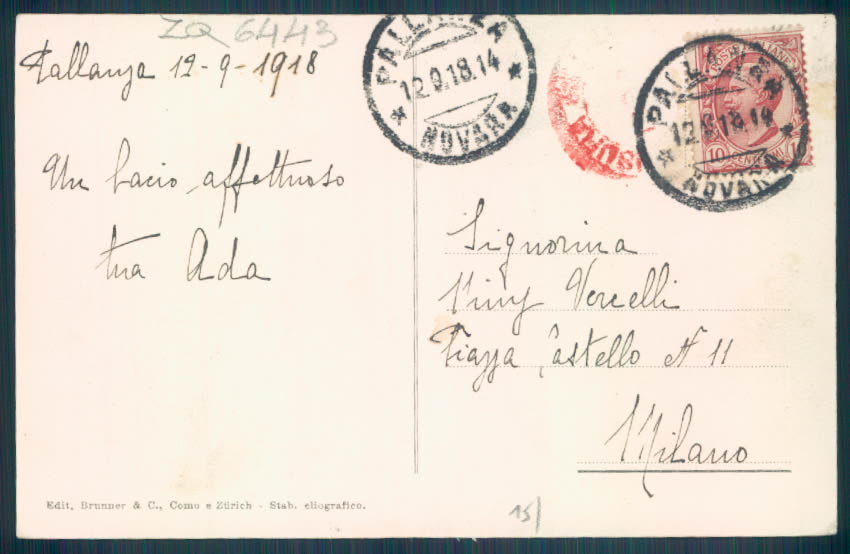 ZQ 6443
Pallanza 12-9-1918
Un bacio affettuoso
tua Ada
Edit. Brunner & C., Como e Zürich - Stab. eliografico.
PALLANZA
12.9.18.14
NOVARA
PALLANZA
12.9.18.14
NOVARA
POSTE ITALIANE
10 CENT 10
Signorina
Vercelli
Piazza Castello N 11
Milano
15/